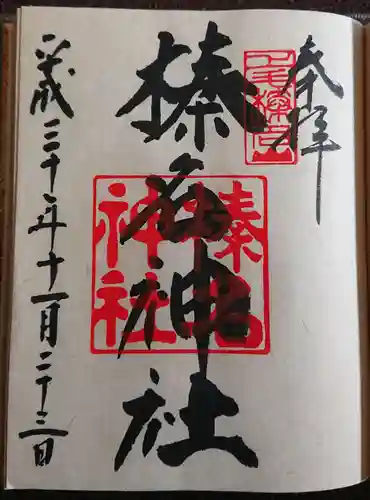 奉拝
上毛榛名山
榛名神社
榛名神社
平成三十年十一月二十三日